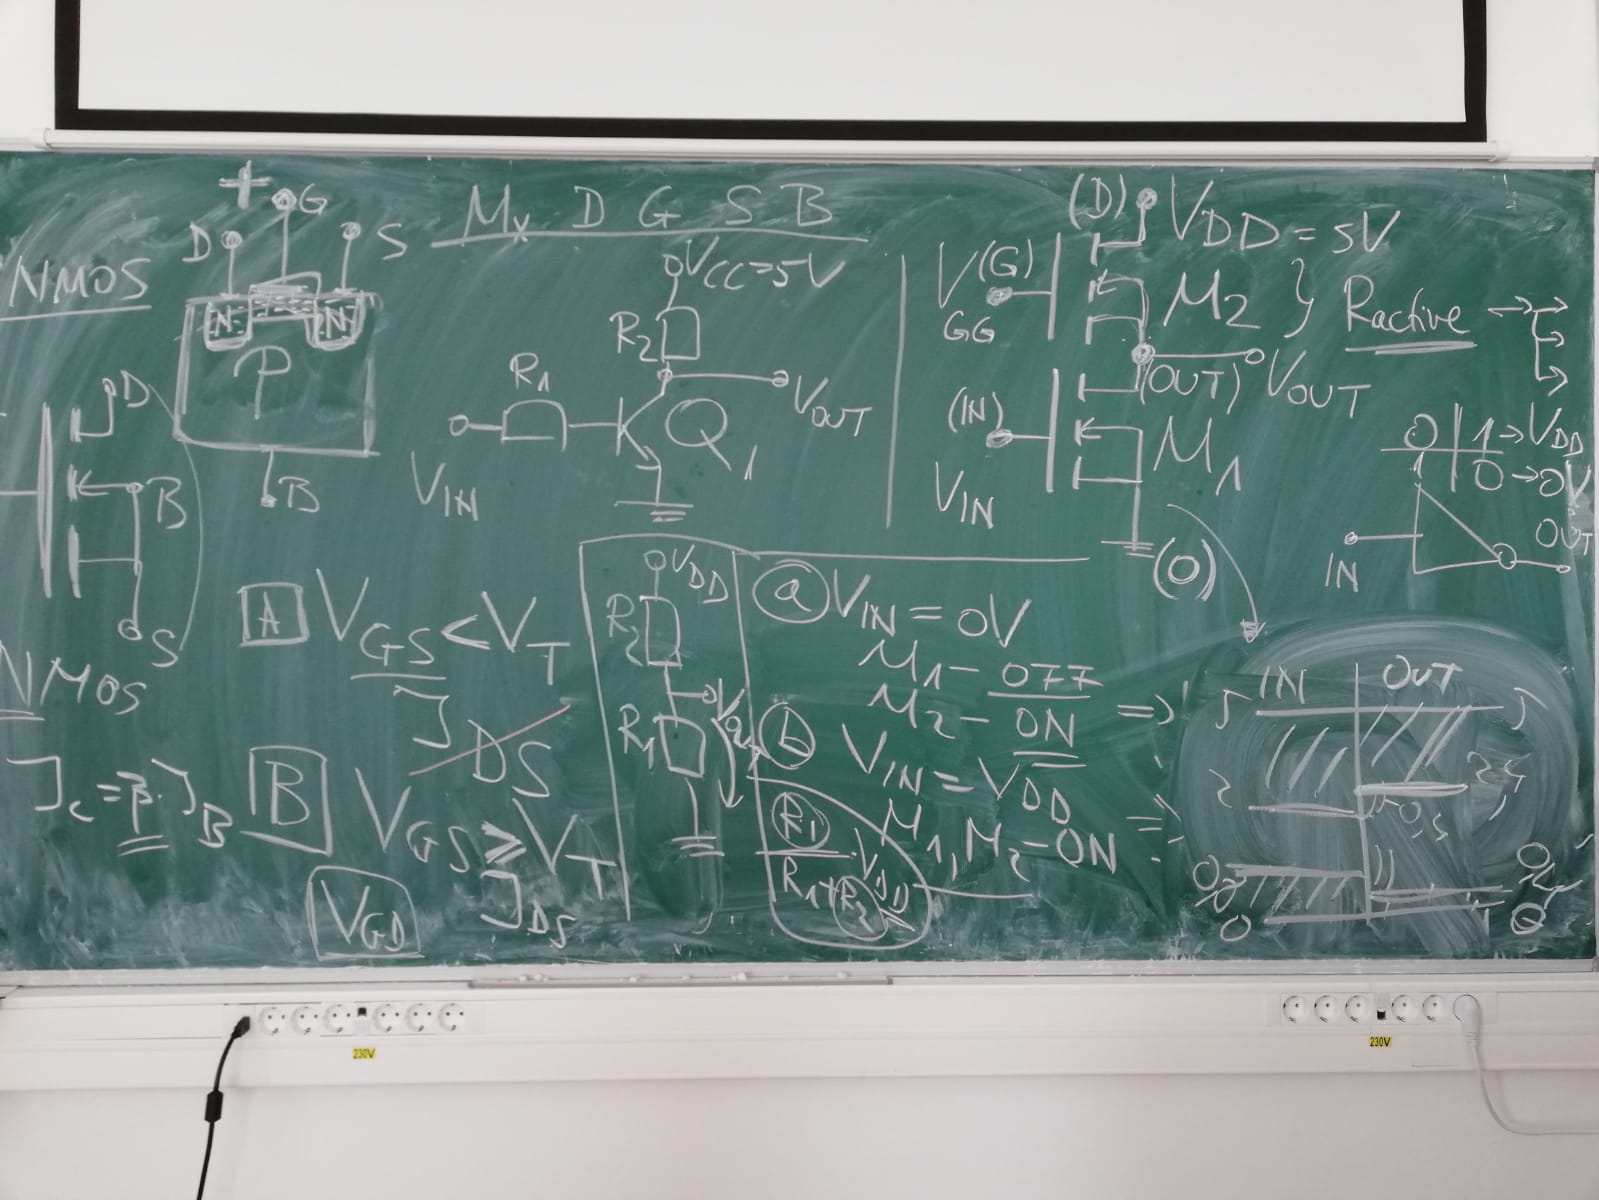 NMOS
+
G
D
S
N
N
P
B
D
B
S
NMOS
Mx D G S B
VCC=5V
R2
R1
VOUT
Q1
VIN
(D) VDD = 5V
V(G)
GG
M2 } Ractive
(OUT) VOUT
(IN)
M1
VIN
(0)
0 | 1 → VDD
1 | 0 → 0V
IN
OUT
A VGS < VT
IDS
IC = β·IB
B VGS ≥ VT
IDS
VGD
VDD
R2
R1
a VIN = 0V
M1 - OFF
M2 - ON =>
b VIN = VDD
M1, M2 - ON =>
R1
R1+R2
· VDD
IN OUT
5
5
2
0
0
230V
230V